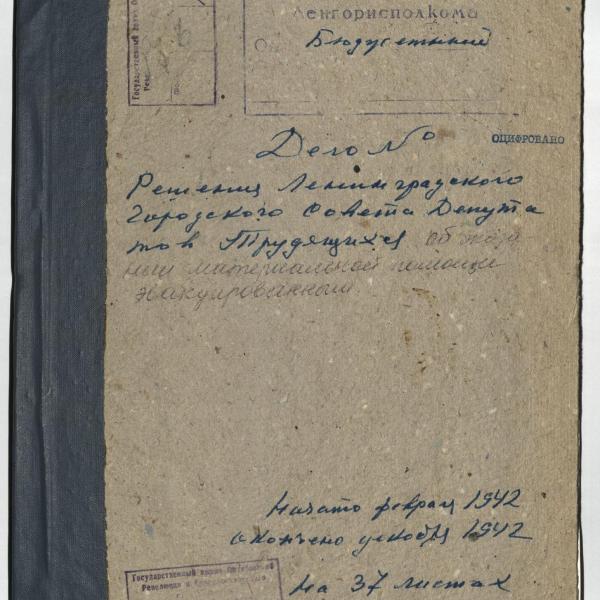 Ленгорисполкома
Бюджетный
Дело №
ОЦИФРОВАНО
Решения Ленинградского
Городского Совета Депута
тов Трудящихся об
материальной помощи
эвакуированным
Начато февраля 1942
окончено декабря 1942
На 37 листах
Государственный архив Октябрьской
Революции и